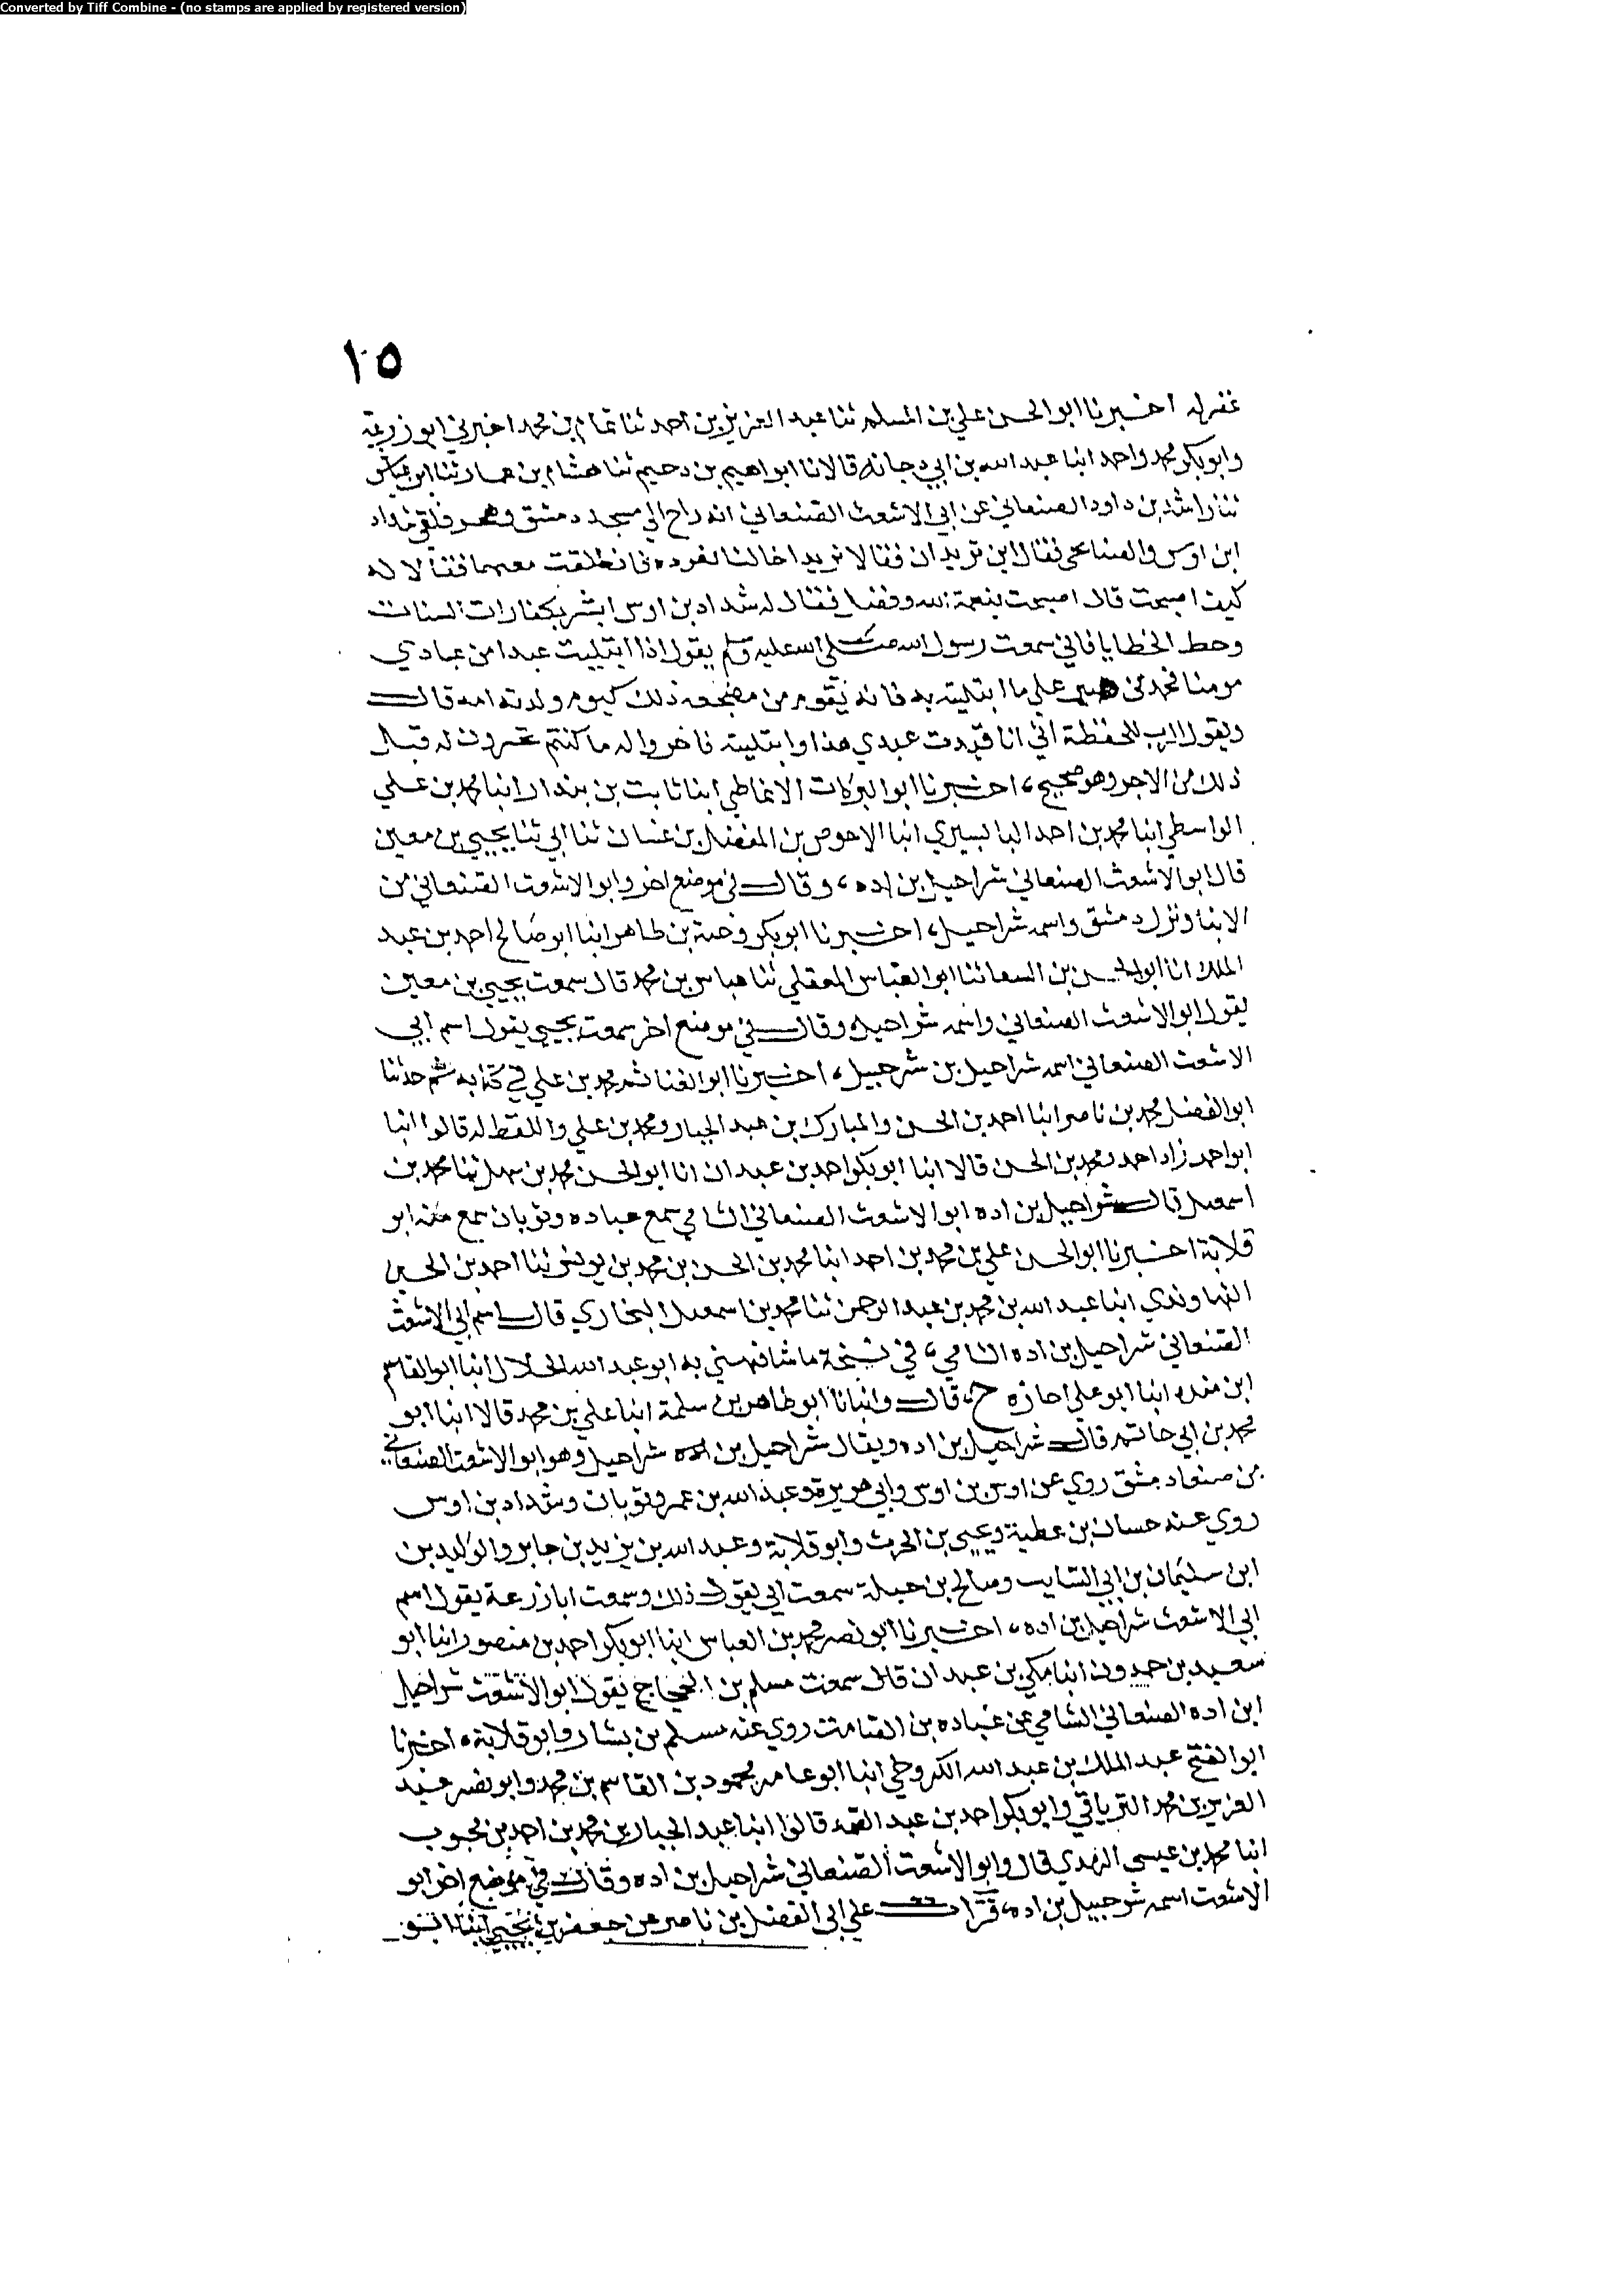 Converted by Tiff Combine - (no stamps are applied by registered version)
١٥
غفر له اخبرنا ابو الحسن علي بن المسلم ثنا عبد العزيز بن احمد ثنا تمام بن محمد اخبرني ابو زرعة
وابو بكر محمد واحمد ابنا عبد الله بن ابي دجانه قالا نا ابراهيم بن دحيم ثنا هشام بن عمار ثنا ابن عياش
ثنا راشد بن داود الصنعاني عن ابي الاشعث الصنعاني انه راح الي مسجد دمشق وهجر فلقي شداد
ابن اوس والصنابحي فقال اين تريدان فقالا نريد اخا لنا نعوده فانطلقت معهما فقالا له
كيف اصبحت قال اصبحت بنعمة الله وفضل فقال له شداد بن اوس ابشر بكفارات السيات
وحط الخطايا فاني سمعت رسول الله صلى الله عليه وسلم يقول اذا ابتليت عبدا من عبادي
مومنا فحمدني وصبر علي ما ابتليته به فانه يقوم من مضجعه ذلك كيوم ولدته امه قال
ويقول الرب للحفظة اني انا قيدت عبدي هذا وابتليته فاجروا له ما كنتم تجرون له قبل
ذلك من الاجر وهو صحيح، اخبرنا ابو البركات الانماطي ابنا ثابت بن بندار ابنا محمد بن علي
الواسطي ابنا محمد بن احمد البابسيري ابنا الاحوص بن المفضل بن غسان ثنا ابي ثنا يحيي بن معين
قال ابو الاشعث الصنعاني شراحيل بن اده، وقال في موضع اخر وابو الاشعث الصنعاني من
الابنا ونزل دمشق واسمه شراحيل، اخبرنا ابو بكر وجيه بن طاهر ابنا ابو صالح احمد بن عبد
الملك انا ابو الحسن بن السقا ثنا ابو العباس المعقلي ثنا عباس بن محمد قال سمعت يحيي بن معين
يقول ابو الاشعث الصنعاني واسمه شراحيل وقال في موضع اخر سمعت يحيي يقول اسم ابي
الاشعث الصنعاني اسمه شراحيل بن شرحبيل، اخبرنا ابو الغنائم محمد بن علي في كتابه ثم حدثنا
ابو الفضل محمد بن ناصر ابنا احمد بن الحسن والمبارك بن عبد الجبار ومحمد بن علي واللفظ له قالوا ابنا
ابو احمد زاد احمد ومحمد بن الحسن قالا ابنا ابو بكر احمد بن عبدان انا ابو الحسن محمد بن سهل ثنا محمد بن
اسمعيل قال شراحيل بن اده ابو الاشعث الصنعاني الشامي سمع عباده وثوبان سمع منه ابو
قلابة اخبرنا ابو الحسن علي بن محمد بن احمد ابنا محمد بن الحسن بن محمد بن يونس ثنا احمد بن الحسين
النهاوندي ابنا عبد الله بن محمد بن عبد الرحمن ثنا محمد بن اسمعيل البخاري قال اسم ابي الاشعث
الصنعاني شراحيل بن اده الشامي، في نسخة ما شافهني به ابو عبد الله الخلال ابنا ابو القاسم
ابن منده ابنا ابو علي اجازه ح، قال وانبانا ابو طاهر بن سلمة ابنا علي بن محمد قالا ابنا ابو
محمد بن ابي حاتم قال شراحيل بن اده ويقال شراحيل بن اده شراحيل وهو ابو الاشعث الصنعاني
من صنعاد مشق روي عن اوس بن اوس وابي هريرة وعبد الله بن عمر وثوبان وشداد بن اوس
روي عنه حسان بن عطية ويحيي بن الحرث وابو قلابة وعبد الله بن يزيد بن جابر والوليد بن
ابن سليمان بن ابي السايب وصالح بن جبلة سمعت ابي يقول ذلك وسمعت ابا زرعة يقول اسم
ابي الاشعث شراحيل بن اده، اخبرنا ابو نصر محمد بن العباس ابنا ابو بكر احمد بن منصور ابنا ابو
سعيد بن حمدون ابنا مكي بن عبدان قال سمعت مسلم بن الحجاج يقول ابو الاشعث شراحيل
ابن اده الصنعاني الشامي عن عباده بن الصامت روي عنه مسلم بن بشار وابو قلابة، اخبرنا
ابو الفتح عبد الملك بن عبد الله الكروخي ابنا ابو عامر محمود بن القاسم بن محمد وابو نصر عبد
العزيز بن محمد الترياقي وابو بكر احمد بن عبد الصمد قالوا ابنا عبد الجبار بن محمد بن احمد بن محبوب
ابنا محمد بن عيسى الترمذي قال وابو الاشعث الصنعاني شراحيل بن اده وقال في موضع اخر ابو
الاشعث اسمه شرحبيل بن اده، قرات علي ابي الفضل بن ناصر عن جعفر بن يحيي ابنا ابو